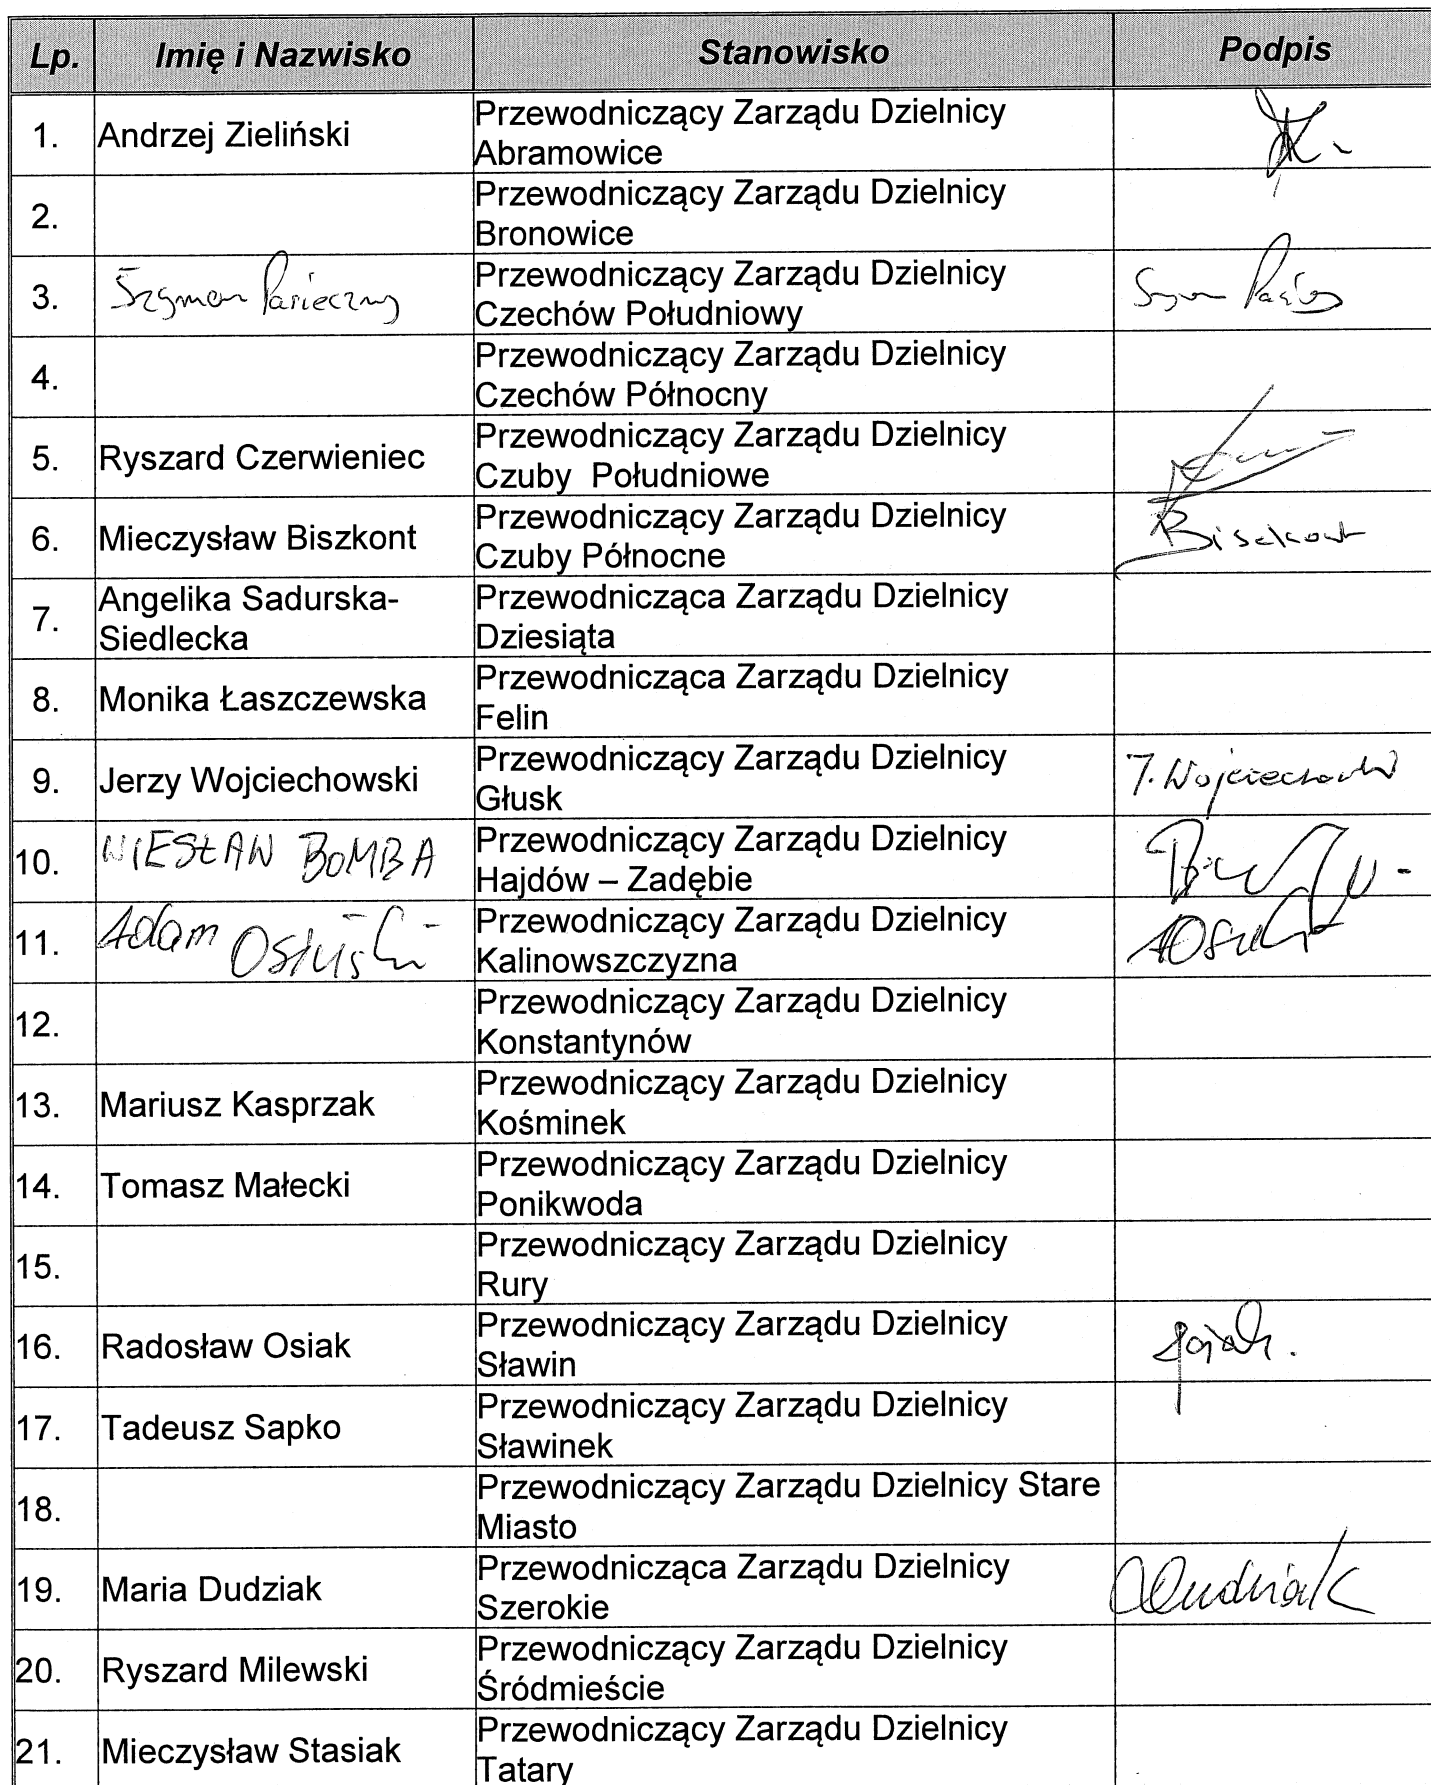 Lp. Imię i Nazwisko Stanowisko Podpis
1. Andrzej Zieliński Przewodniczący Zarządu Dzielnicy
Abramowice
2. Przewodniczący Zarządu Dzielnicy
Bronowice
3. Szymon Pasieczny Przewodniczący Zarządu Dzielnicy
Czechów Południowy
4. Przewodniczący Zarządu Dzielnicy
Czechów Północny
5. Ryszard Czerwieniec Przewodniczący Zarządu Dzielnicy
Czuby Południowe
6. Mieczysław Biszkont Przewodniczący Zarządu Dzielnicy Biszkont
Czuby Północne
7. Angelika Sadurska- Przewodnicząca Zarządu Dzielnicy
Siedlecka Dziesiąta
8. Monika Łaszczewska Przewodnicząca Zarządu Dzielnicy
Felin
9. Jerzy Wojciechowski Przewodniczący Zarządu Dzielnicy J. Wojciechowski
Głusk
10. WIESŁAW BOMBA Przewodniczący Zarządu Dzielnicy
Hajdów – Zadębie
11. Adam Osiński Przewodniczący Zarządu Dzielnicy
Kalinowszczyzna
12. Przewodniczący Zarządu Dzielnicy
Konstantynów
13. Mariusz Kasprzak Przewodniczący Zarządu Dzielnicy
Kośminek
14. Tomasz Małecki Przewodniczący Zarządu Dzielnicy
Ponikwoda
15. Przewodniczący Zarządu Dzielnicy
Rury
16. Radosław Osiak Przewodniczący Zarządu Dzielnicy
Sławin
17. Tadeusz Sapko Przewodniczący Zarządu Dzielnicy
Sławinek
18. Przewodniczący Zarządu Dzielnicy Stare
Miasto
19. Maria Dudziak Przewodnicząca Zarządu Dzielnicy Dudziak
Szerokie
20. Ryszard Milewski Przewodniczący Zarządu Dzielnicy
Śródmieście
21. Mieczysław Stasiak Przewodniczący Zarządu Dzielnicy
Tatary